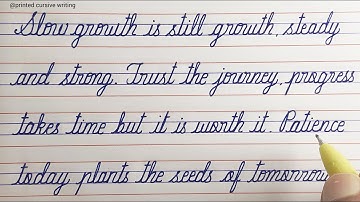 @printed cursive writing
Slow growth is still growth, steady
and strong. Trust the journey, progress
takes time but it is worth it. Patience
today plants the seeds of tomorrow